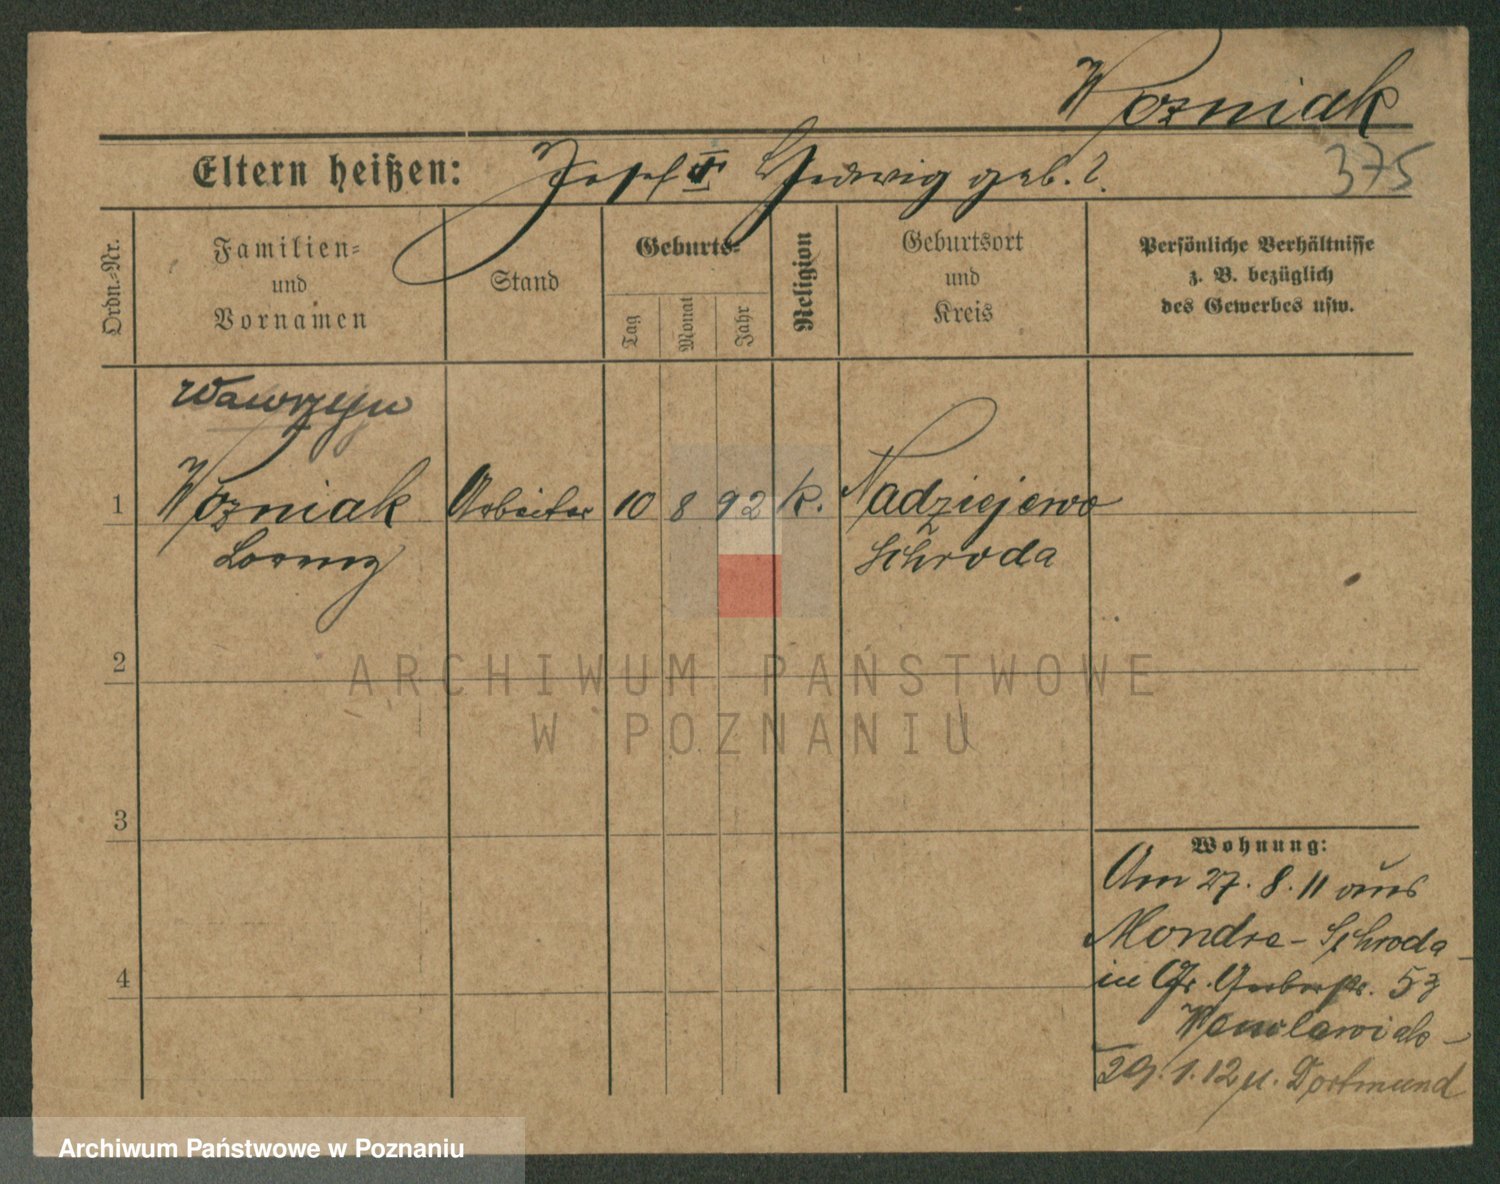 Wozniak
Eltern heißen: Josef † Hedwig geb. ?.
375
Ordn.-Nr.
Familien-
und
Vornamen
Stand
Geburts-
Tag
Monat
Jahr
Religion
Geburtsort
und
Kreis
Persönliche Verhältnisse
z. B. bezüglich
des Gewerbes usw.
Wawrzyn
1 Wozniak Arbeiter 10 8 92 k. Nadziejewo
Lorenz Schroda
2
ARCHIWUM PAŃSTWOWE
W POZNANIU
3
4
Wohnung:
Am 27. 8. 11 aus
Mondre - Schroda
in Gr. Gerberstr. 53
29. 1. 12 n. Dortmund
Archiwum Państwowe w Poznaniu